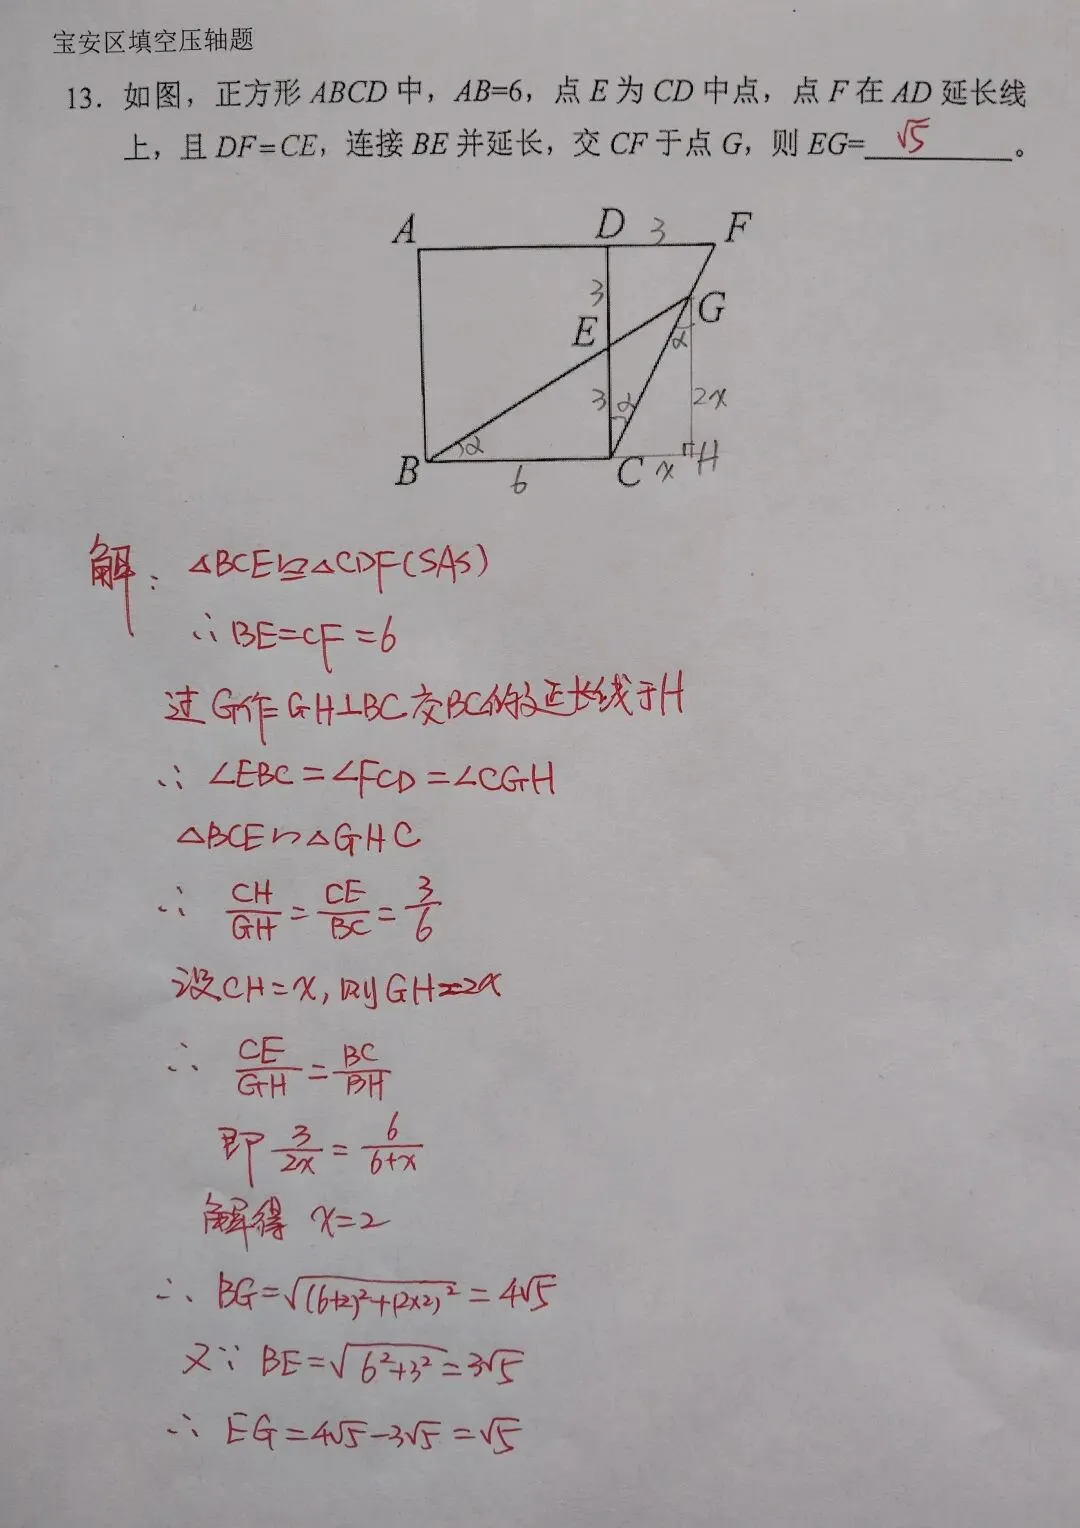 宝安区填空压轴题
13. 如图，正方形ABCD中，AB=6，点E为CD中点，点F在AD延长线
上，且DF=CE，连接BE并延长，交CF于点G，则EG=√5。
A D 3 F
3
G
E
α
3 α 2x
α
B C x H
6
解: △BCE≌△CDF(SAS)
∴BE=CF=6
过G作GH⊥BC交BC的延长线于H
∴ ∠EBC=∠FCD=∠CGH
△BCE∽△GHC
∴ CH/GH=CE/BC=3/6
设CH=x,则GH=2x
∴ CE/GH=BC/BH
即 3/2x=6/6+x
解得 x=2
∴ BG=√(6+2)²+(2×2)²=4√5
又∵ BE=√6²+3²=3√5
∴ EG=4√5-3√5=√5